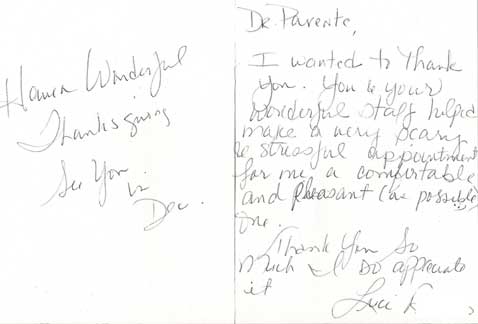 Have a Wonderful
Thanksgiving
See You
in
Dec.
Dr. Parente,
I wanted to Thank
You. You & your
wonderful staff helped
make a very scary
& stressful appointment
for me a comfortable
and pleasant (as possible)
one.
Thank You So
much I DO appreciate
it
Luci K